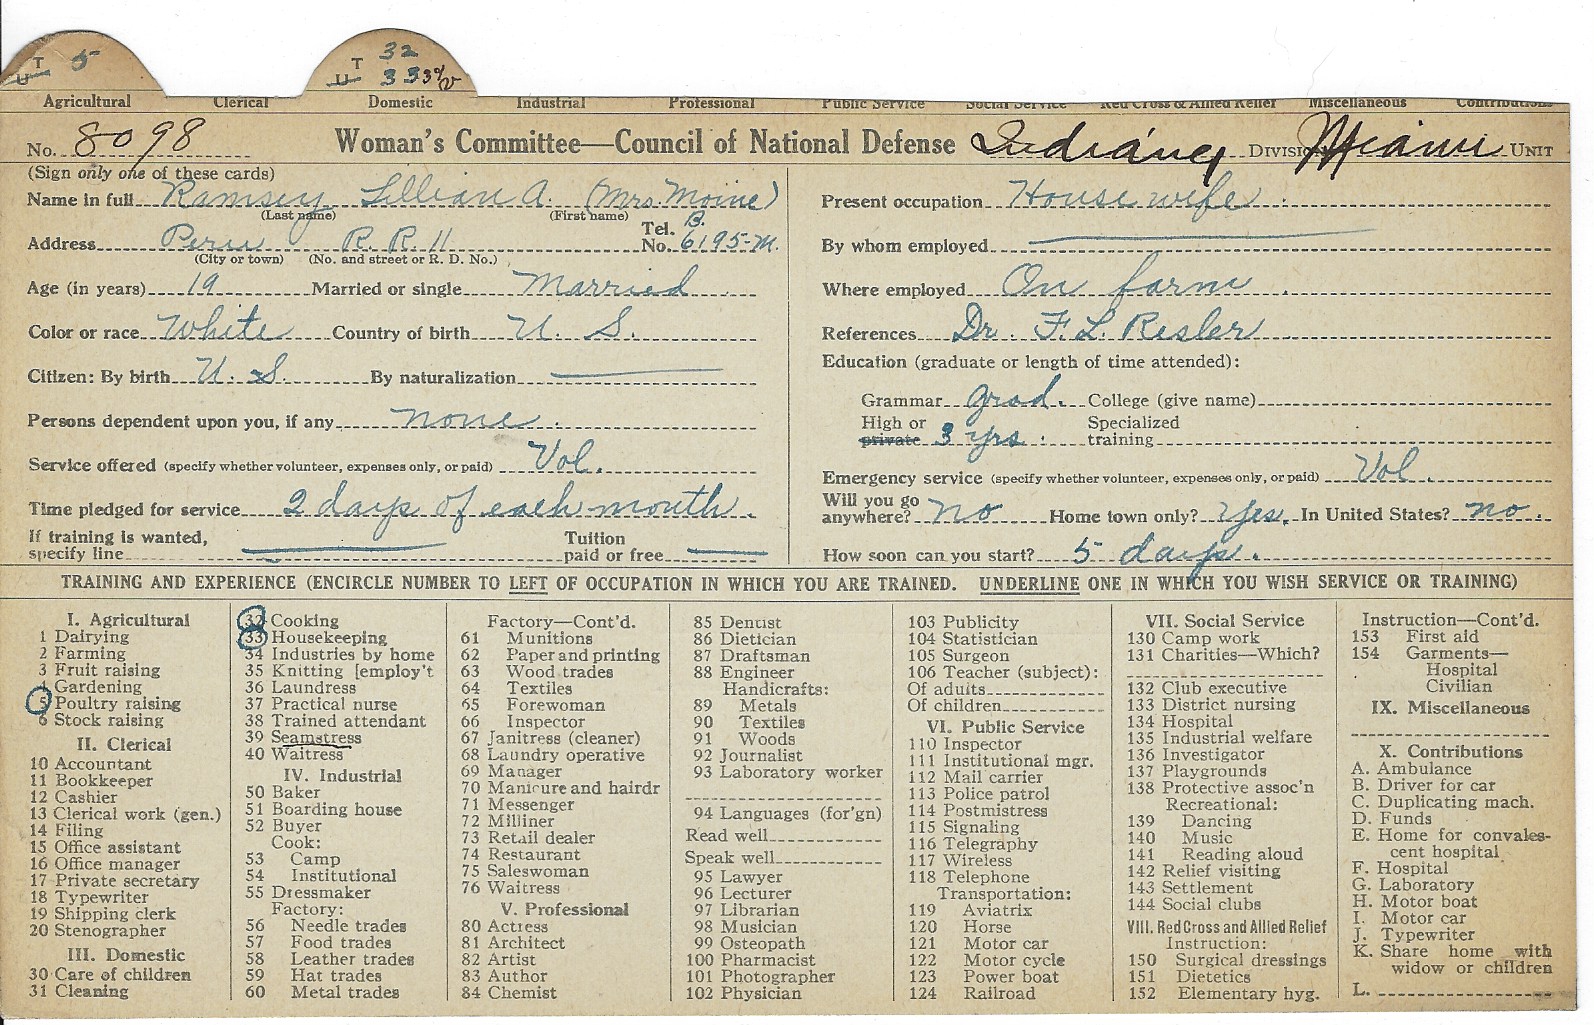 T 5
U
T 32
U 33 39
Agricultural Clerical Domestic Industrial Professional Public Service Social Service Red Cross & Allied Relief Miscellaneous Contributions
No. 8098 Woman's Committee—Council of National Defense Indiana Division Miami Unit
(Sign only one of these cards)
Name in full Ramsey Lillian A. (Mrs. Moine)
(Last name) (First name)
Address Peru R. R. 11 Tel. No. B. 6195-M.
(City or town) (No. and street or R. D. No.)
Age (in years) 19 Married or single Married
Color or race White Country of birth U. S.
Citizen: By birth U. S. By naturalization
Persons dependent upon you, if any none.
Service offered (specify whether volunteer, expenses only, or paid) Vol.
Time pledged for service 2 days of each month.
If training is wanted, specify line Tuition paid or free
Present occupation House wife
By whom employed
Where employed On farm
References Dr. F. L. Resler
Education (graduate or length of time attended):
Grammar grad. College (give name)
High or private 3 yrs. Specialized training
Emergency service (specify whether volunteer, expenses only, or paid) Vol.
Will you go anywhere? no Home town only? Yes. In United States? no.
How soon can you start? 5 days.
TRAINING AND EXPERIENCE (ENCIRCLE NUMBER TO LEFT OF OCCUPATION IN WHICH YOU ARE TRAINED. UNDERLINE ONE IN WHICH YOU WISH SERVICE OR TRAINING)
I. Agricultural
1 Dairying
2 Farming
3 Fruit raising
4 Gardening
5 Poultry raising
6 Stock raising
II. Clerical
10 Accountant
11 Bookkeeper
12 Cashier
13 Clerical work (gen.)
14 Filing
15 Office assistant
16 Office manager
17 Private secretary
18 Typewriter
19 Shipping clerk
20 Stenographer
III. Domestic
30 Care of children
31 Cleaning
32 Cooking
33 Housekeeping
34 Industries by home
35 Knitting [employ't
36 Laundress
37 Practical nurse
38 Trained attendant
39 Seamstress
40 Waitress
IV. Industrial
50 Baker
51 Boarding house
52 Buyer
Cook:
53 Camp
54 Institutional
55 Dressmaker
Factory:
56 Needle trades
57 Food trades
58 Leather trades
59 Hat trades
60 Metal trades
Factory—Cont'd.
61 Munitions
62 Paper and printing
63 Wood trades
64 Textiles
65 Forewoman
66 Inspector
67 Janitress (cleaner)
68 Laundry operative
69 Manager
70 Manicure and hairdr
71 Messenger
72 Milliner
73 Retail dealer
74 Restaurant
75 Saleswoman
76 Waitress
V. Professional
80 Actress
81 Architect
82 Artist
83 Author
84 Chemist
85 Dentist
86 Dietician
87 Draftsman
88 Engineer
Handicrafts:
89 Metals
90 Textiles
91 Woods
92 Journalist
93 Laboratory worker
94 Languages (for'gn)
Read well
Speak well
95 Lawyer
96 Lecturer
97 Librarian
98 Musician
99 Osteopath
100 Pharmacist
101 Photographer
102 Physician
103 Publicity
104 Statistician
105 Surgeon
106 Teacher (subject):
Of adults
Of children
VI. Public Service
110 Inspector
111 Institutional mgr.
112 Mail carrier
113 Police patrol
114 Postmistress
115 Signaling
116 Telegraphy
117 Wireless
118 Telephone
Transportation:
119 Aviatrix
120 Horse
121 Motor car
122 Motor cycle
123 Power boat
124 Railroad
VII. Social Service
130 Camp work
131 Charities—Which?
132 Club executive
133 District nursing
134 Hospital
135 Industrial welfare
136 Investigator
137 Playgrounds
138 Protective assoc'n
Recreational:
139 Dancing
140 Music
141 Reading aloud
142 Relief visiting
143 Settlement
144 Social clubs
VIII. Red Cross and Allied Relief
Instruction:
150 Surgical dressings
151 Dietetics
152 Elementary hyg.
Instruction—Cont'd.
153 First aid
154 Garments—
Hospital
Civilian
IX. Miscellaneous
X. Contributions
A. Ambulance
B. Driver for car
C. Duplicating mach.
D. Funds
E. Home for convales-
cent hospital
F. Hospital
G. Laboratory
H. Motor boat
I. Motor car
J. Typewriter
K. Share home with
widow or children
L.